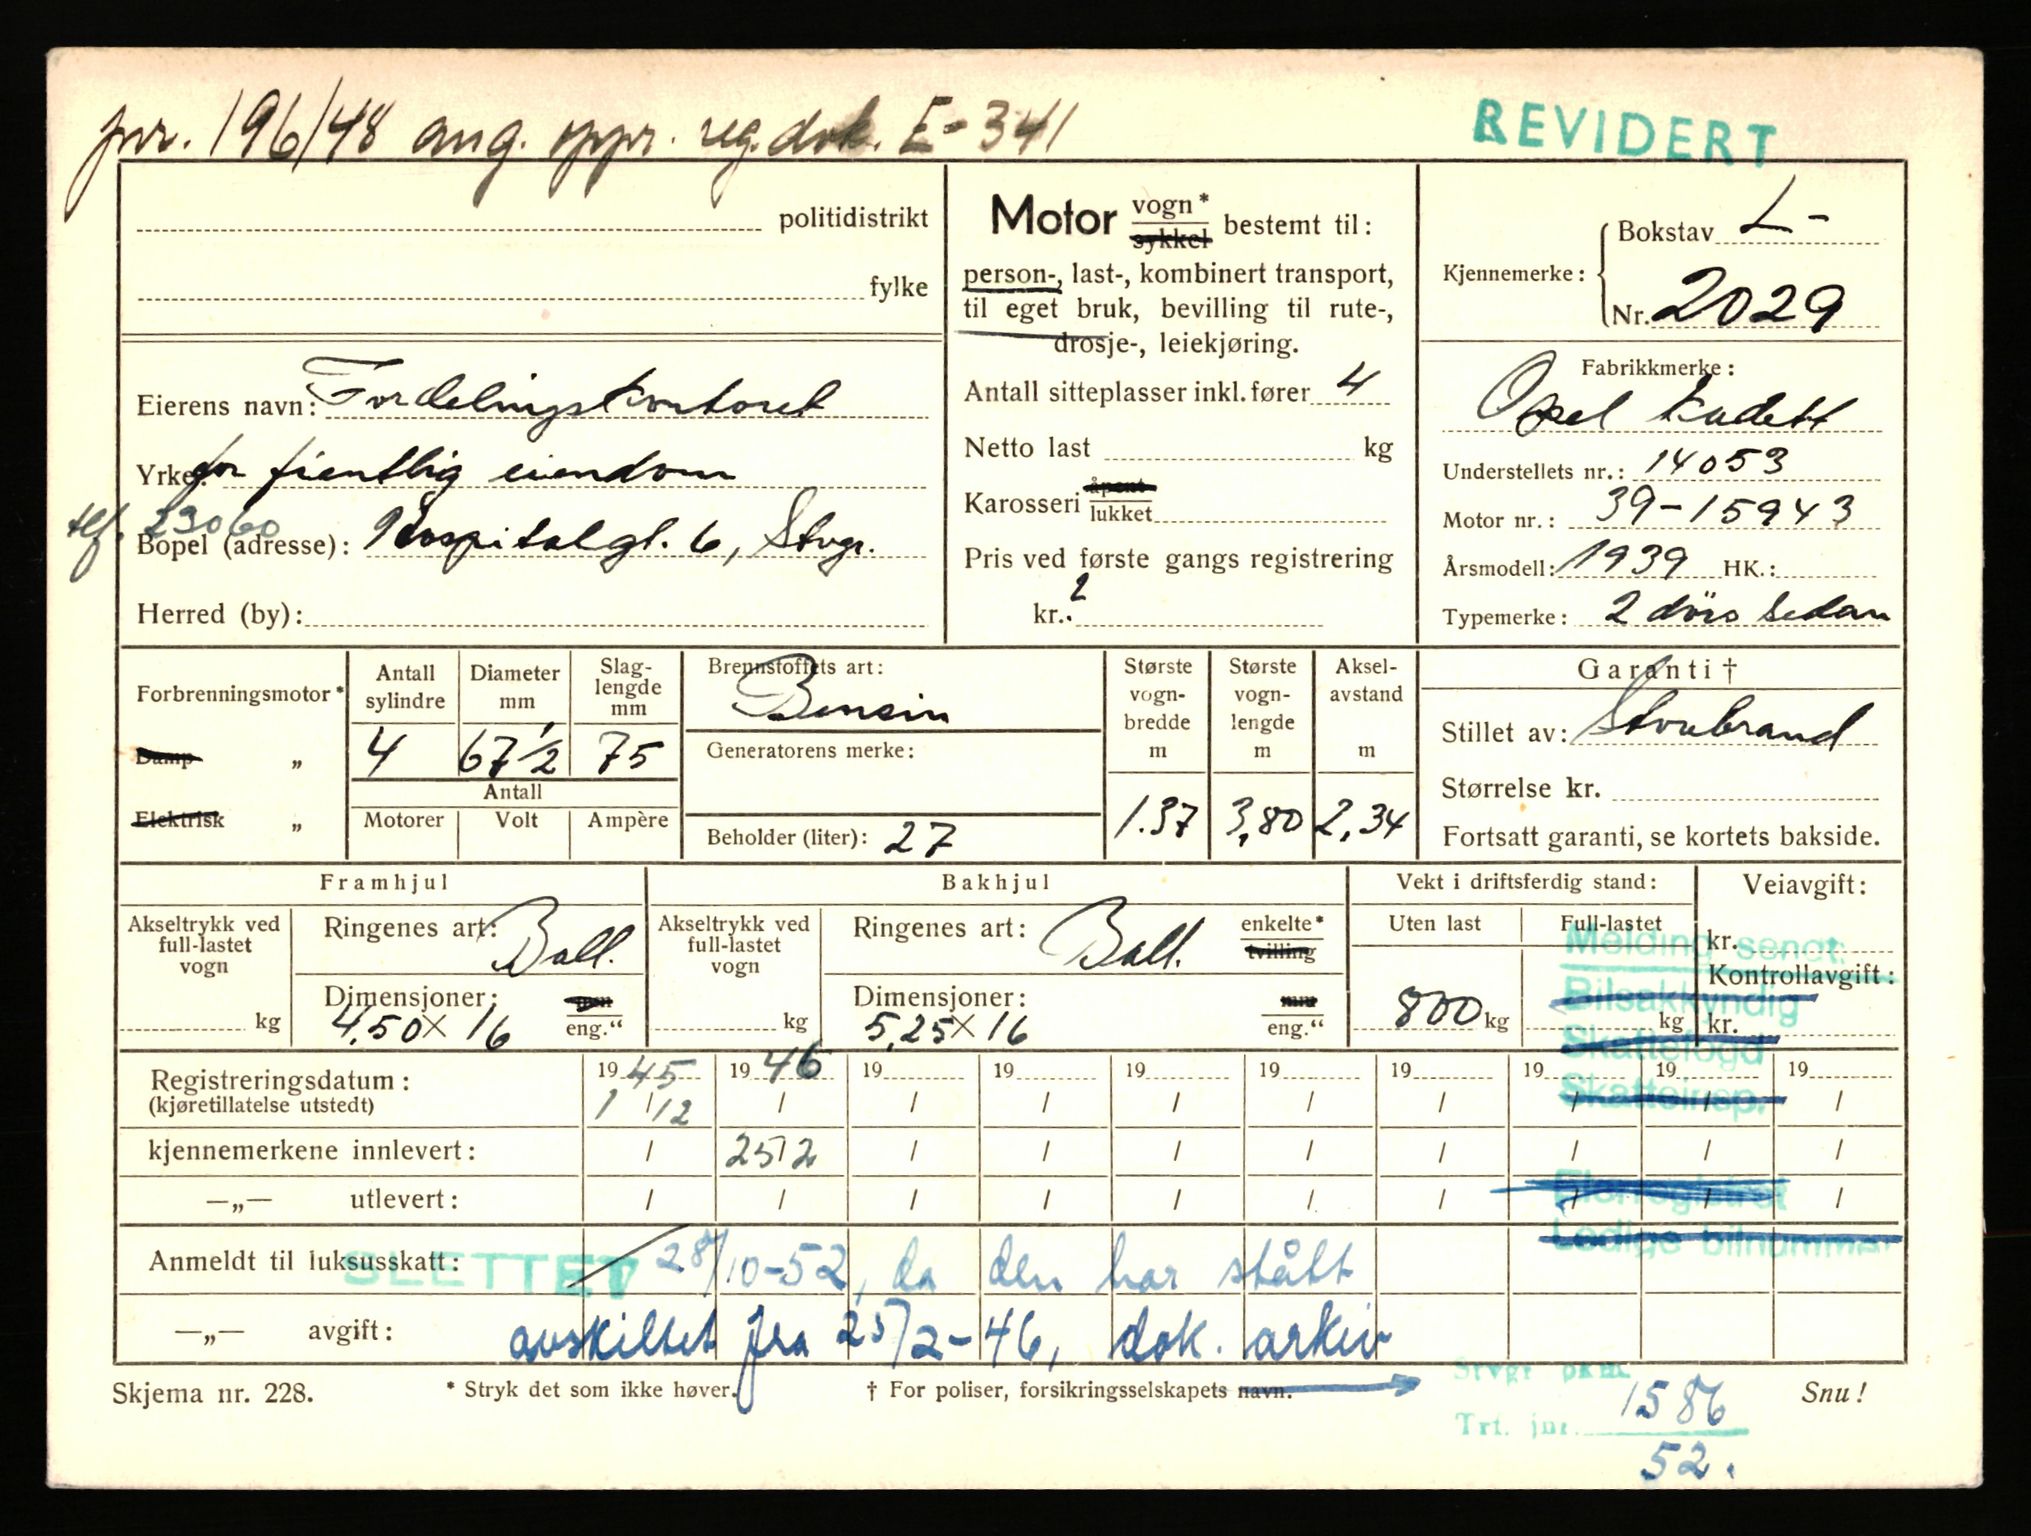 jnr. 196/48 ang. oppr. reg.dok. E-341
REVIDERT
politidistrikt
fylke
Eierens navn: Fordelingskontoret
Yrke: for fientlig eiendom
tlf. 23060
Bopel (adresse): Hospitalgt. 6, Stvgr.
Herred (by):
Motor vogn* sykkel bestemt til:
person-, last-, kombinert transport,
til eget bruk, bevilling til rute-,
drosje-, leiekjøring.
Antall sitteplasser inkl. fører 4
Netto last kg
Karosseri åpent lukket
Pris ved første gangs registrering
kr.
Kjennemerke: Bokstav L-
Nr. 2029
Fabrikkmerke:
Opel Kadett
Understellets nr.: 14053
Motor nr.: 39-15943
Årsmodell: 1939 HK.:
Typemerke: 2 dörs Sedan
Forbrenningsmotor*
Damp „
Elektrisk „
Antall sylindre
4
Diameter mm
67 1/2
Slag-lengde mm
75
Antall
Motorer Volt Ampère
Brennstoffets art:
Bensin
Generatorens merke:
Beholder (liter): 27
Største vogn-bredde m
1.37
Største vogn-lengde m
3,80
Aksel-avstand m
2,34
Garanti †
Stillet av: Storebrand
Størrelse kr.
Fortsatt garanti, se kortets bakside.
Framhjul
Akseltrykk ved full-lastet vogn
kg
Ringenes art: Ball.
Dimensjoner: mm eng.“
4,50 x 16
Bakhjul
Akseltrykk ved full-lastet vogn
kg
Ringenes art: Ball. enkelte* tvilling
Dimensjoner: mm eng.“
5,25 x 16
Vekt i driftsferdig stand:
Uten last Full-lastet
800 kg kg
Veiavgift:
kr.
Kontrollavgift:
kr.
Melding sendt:
Bilsakkyndig
Skattefogd
Skatteinsp.
Eierregistret
Ledige bilnummer
Registreringsdatum: 1945 1946 19 19 19 19 19 19 19 19
(kjøretillatelse utstedt) 1/12 / / / / / / / / /
kjennemerkene innlevert: / 25/2 / / / / / / / /
—„— utlevert: / / / / / / / / / /
Anmeldt til luksusskatt:
SLETTET 28/10-52, da den har stått
—„— avgift: avskiltet fra 25/2-46, dok. arkiv
Skjema nr. 228.
* Stryk det som ikke høver.
† For poliser, forsikringsselskapets navn.
Snu!
Stvgr pkm.
Trt. jnr. 1586
52.